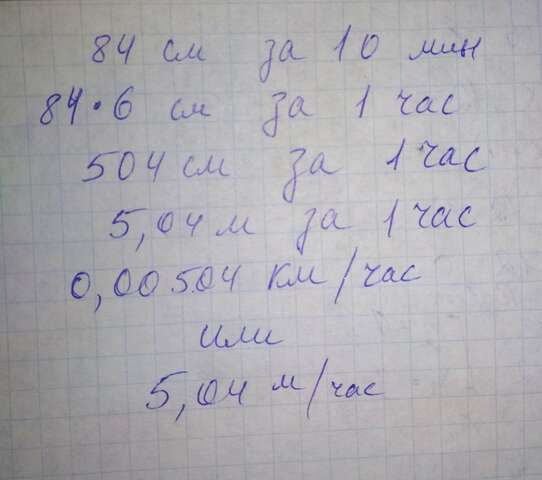 84 см за 10 мин
84•6 см за 1 час
504 см за 1 час
5,04 м за 1 час
0,00504 км/час
или
5,04 м/час